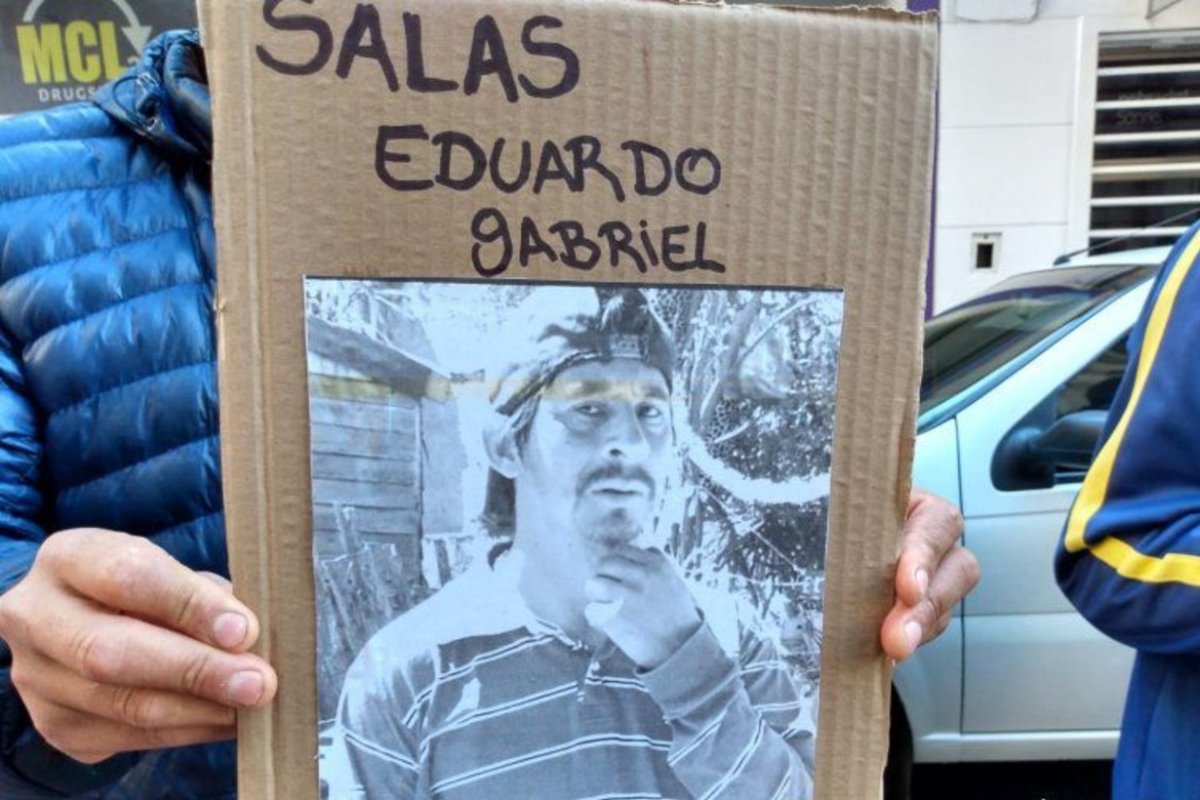 MCL
DRUGS
SALAS
EDUARDO
gABRiEL